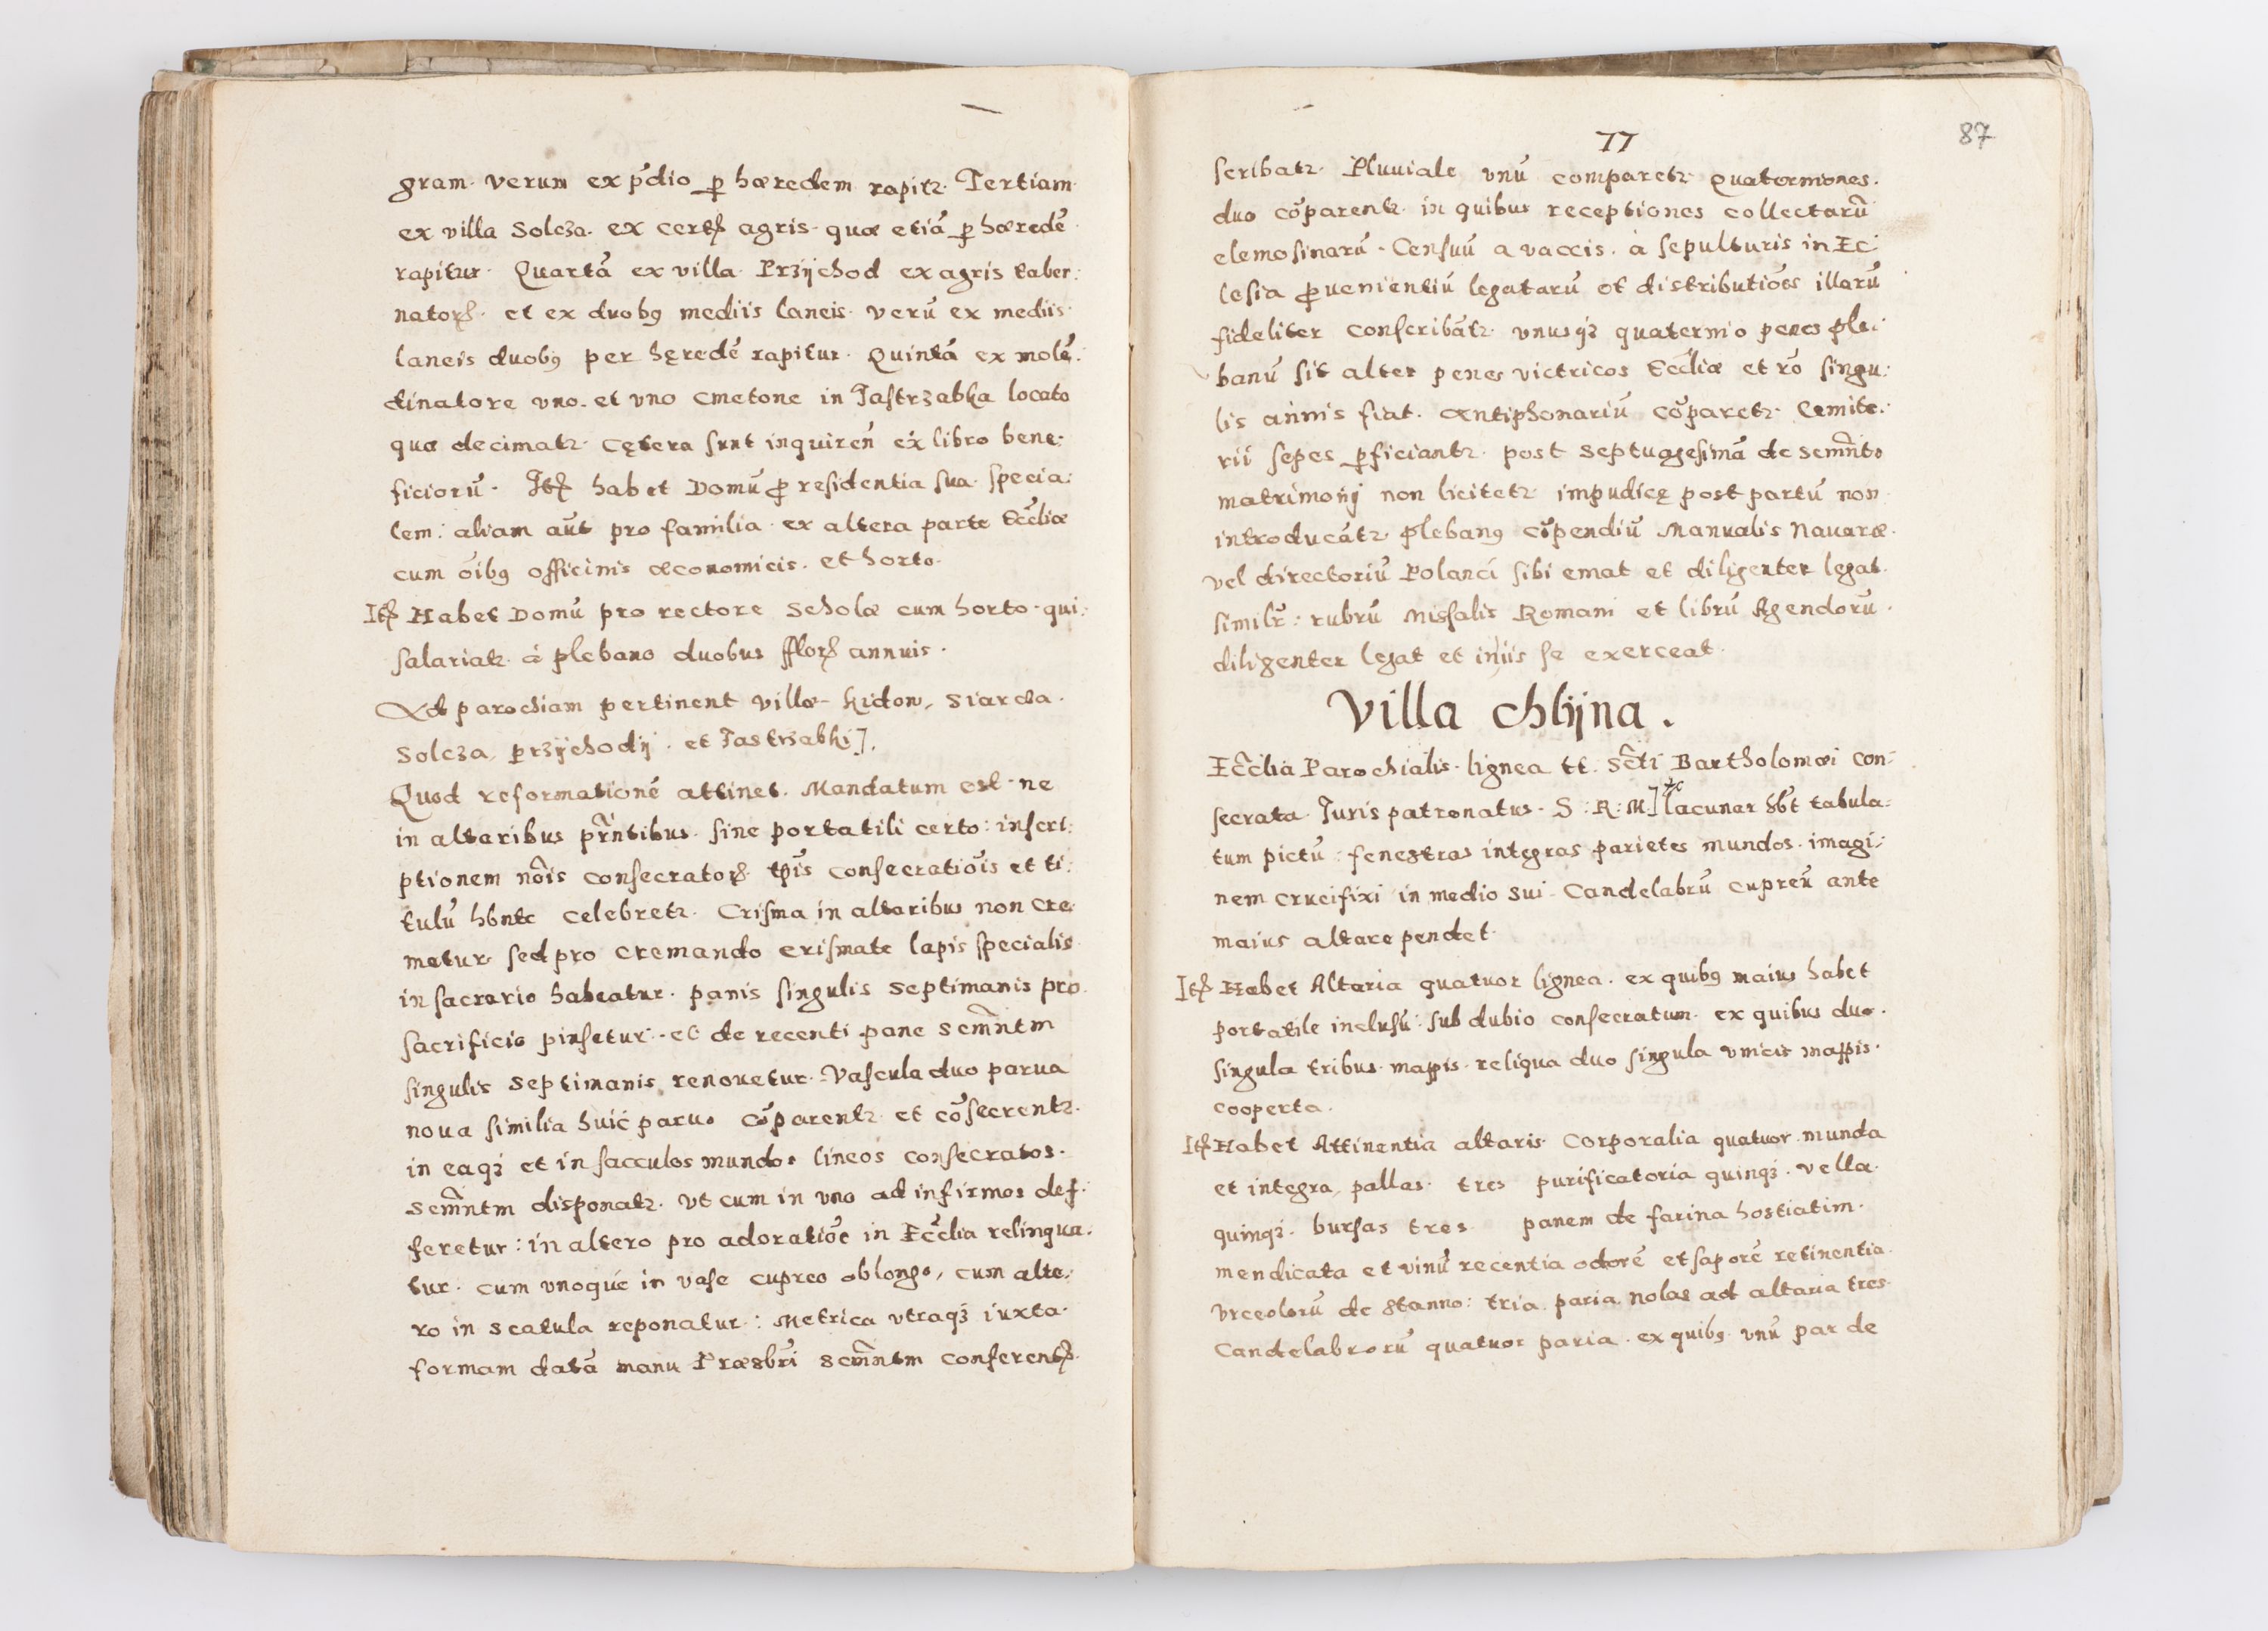 gram. verum ex p̄dio ꝑ hæredem rapitꝛ. Tertiam
ex villa Solcza. ex certꝭ agris. quæ etiā ꝑ hæredē
rapitur. Quartā ex villa Przÿchod ex agris taber:
natorꝭ. et ex duobꝯ mediis laneis. verū ex mediis
laneis duobꝯ per hęredē rapitur. Quintā ex molē:
dinatore vno. et vno cmetone in Jastrzabka locato
quæ decimatꝛ. Cętera sunt inquireñ ex libro bene:
ficiorū. Itꝭ habet Domū ꝓ residentia sua specia:
lem: aliam aūt pro familia. ex altera parte Eccl̄iæ
cum oībꝯ officinis œconomicis. et horto.
Itꝭ Habet Domū pro rectore scholæ cum horto. qui:
salariatꝛ. á plebano duobus fflorꝭ annuis.
Ad parochiam pertinent villæ. Kidow, Siarcza.
Solcza, Przÿchodÿ. et Jastrzabki].
Quod reformationē attinet. Mandatum est. ne
in altaribus pr̄ntibus. sine portatili certo: inscri:
ptionem nōis consecratorꝭ. tp̄is consecratiōis et ti:
tulū hbnte celebretꝛ. Crisma in altaribus non cre
metur sed pro cremando crismate lapis specialis
in sacrario habeatur. panis singulis septimanis pro
sacrificio pinsetur. et de recenti pane Scm̄ntm
singulis septimanis renouetur. Vascula duo parua
noua similia huic paruo cōparentꝛ. et cōsecrentꝛ.
in eaqꝫ et in sacculos mundos lineos consecratos.
Scm̄ntm disponatꝛ. vt cum in vno ad infirmos def:
feretur: in altero pro adoratiōe in Eccl̄ia relinqua.
tur. cum vnoque in vase cupreo oblongo, cum alte:
ro in scatula reponatur: Metrica vtraqꝫ iuxta.
formam datā manu Præsbr̄i scm̄ntm conferentꝭ.
77
87
scribatꝛ. Pluuiale vnū comparetꝛ. Quaterniones.
duo cōparentꝛ. in quibus receptiones collectarū
elemosinarū. Censuū a vaccis. à sepulturis in Ec:
lesia ꝓuenientiū legatarū et distributiōes illarū
fideliter conscribātꝛ. vnusqꝫ quaternio penes ple:
banū sit alter penes victricos Eccl̄iæ et rō singu:
lis annis fiat. Antiphonariū cōparetꝛ. Cemite:
rii sepes ꝑficiantꝛ. post Septuagesimā de scm̄nto
matrimonÿ non licitetꝛ. impudicę post partū non
introducātꝛ. plebanꝯ cōpendiū Manualis Nauaræ.
vel directoriū Polanci sibi emat et diligenter legat.
similr̄: rubrū Missalis Romani et librū Agendorū.
diligenter legat et in iis se exerceat.
Villa Chlÿna.
Eccl̄ia Parochialis. lignea tt. Sc̄ti Bartholomæi con:
secrata. Juris patronatus. S: R: M] lacunar hb̄t tabula:
tum pictū: fenestras integras parietes mundos. imagi:
nem crucifixi in medio sui. Candelabrū cupreū ante
maius altare pendet.
Itꝭ Habet Altaria quatuor lignea. ex quibꝯ maius habet
portatile inclusū: sub dubio consecratum. ex quibus duo.
singula tribus. mappis. reliqua duo singula vnicis mappis.
cooperta.
Itꝭ Habet Attinentia altaris Corporalia quatuor. munda
et integra, pallas. tres purificatoria quinqꝫ. vella.
quinqꝫ. bursas tres. panem de farina hostiatim.
mendicata et vinū recentia odorē et saporē retinentia.
vrceolorū de stanno: tria paria. nolas ad altaria tres.
Candelabrorū quatuor paria. ex quibꝯ. vnū par de